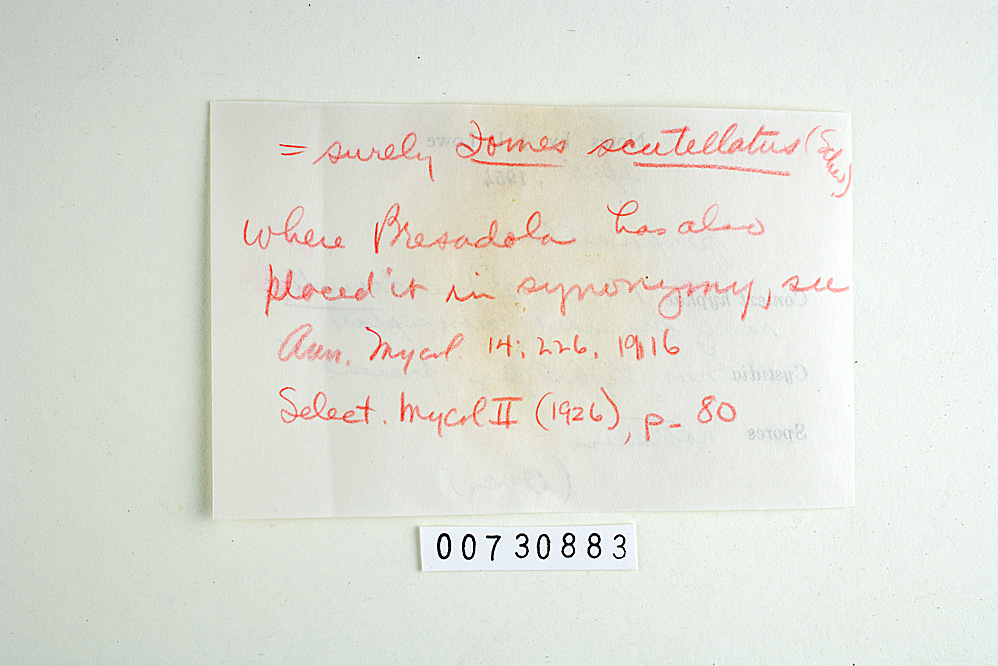 = surely Fomes scutellatus (Schw)
where Bresadola has also
placed it in synonymy, see
Ann. Mycol 14: 226. 1916
Select. Mycol II (1926), p- 80
00730883